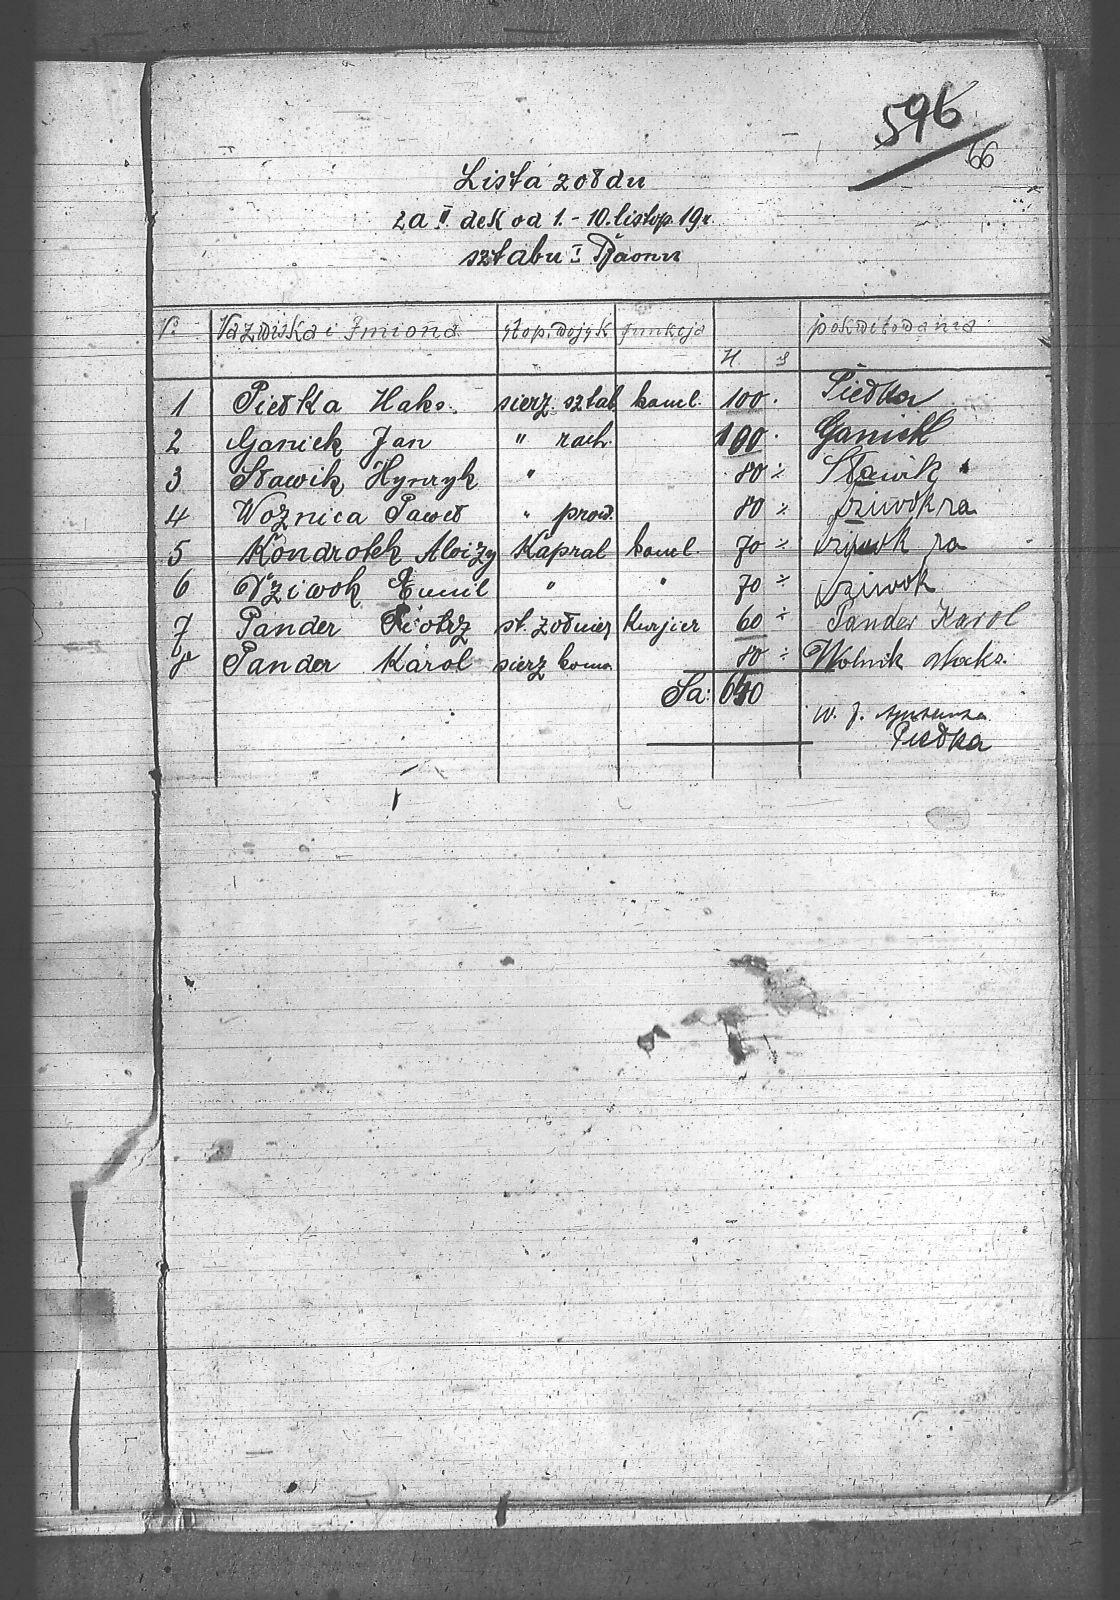 596
66
Lista żołdu
za II dek od 1. - 10. listop. 19r.
sztabu I Rjaonu
No Nazwiska i Imiona stop. wojsk funkcja M S pokwitowania
1 Piełka Maks. sierz. sztab. kancl. 100 . Piełka
2 Ganiek Jan " rach. 100 . Ganiek
3 Sławik Hynryk " 80 ÷ Sławik
4 Woznica Paweł " prow. 80 ÷ Dziwok za
5 Kondrotek Aloizy Kapral kancl. 70 ÷ Dziwok za
6 Dziwok Emil " " 70 ÷ Dziwok
7 Pander Piotrz st. żołnierz Kurjier 60 ÷ Pander Karol
8 Pander Karol sierz 80 ÷ Wolnik Maks.
Sa: 640
w. z.
Piełka